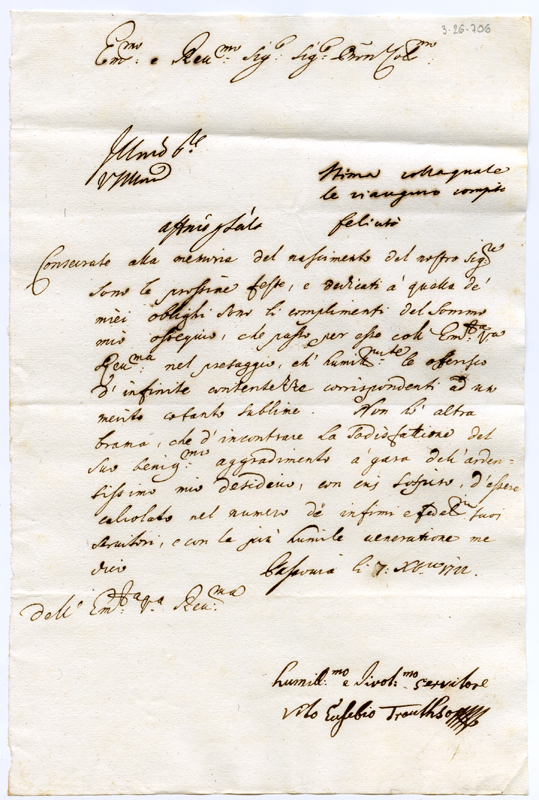 3-26-706
Em.mo e Reu.mo Sig.r Sig.r Prõn Col.mo
Illmõ
stima
le viauguro compite
felicità
Consecrate alla memoria del nascimento del nostro Sig.re
sono le prossime feste, e dedicati á quella de'
miei oblighi sono li complimenti del sommo
mio ossequio, che passo per esse coll' Em.za V.a
Reu.ma nel presaggio, ch' humilm.nte le offerisco
d' infinite contentezze corrispondenti ad un
merito cotanto sublime. Non hó altra
brama, che d' incontrare la sodisfatione del
suo benig.mo aggradimento á gara dell' arden-
tissimo mio desiderio, con cui sospiro, d' essere
calcolato nel numero dé infimi e fedel.mi suoi
servitori, e con la piú humile veneratione me
dico li 7: Xbre 1722.
Dell' Em.za V.a Reu.ma
humil:mo e Divot:mo servitore
Vito Eusebio Trauthso